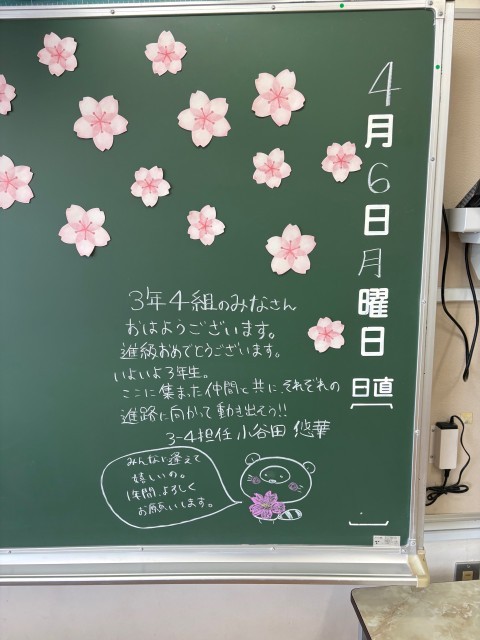 4月6日月曜日
日直
3年4組のみなさん
おはようございます。
進級おめでとうございます。
いよいよ3年生。
ここに集まった仲間と共に、それぞれの
進路に向かって動き出そう!!
3-4担任 小谷田 悠華
みんなに逢えて
嬉しいの。
1年間、よろしく
お願いします。